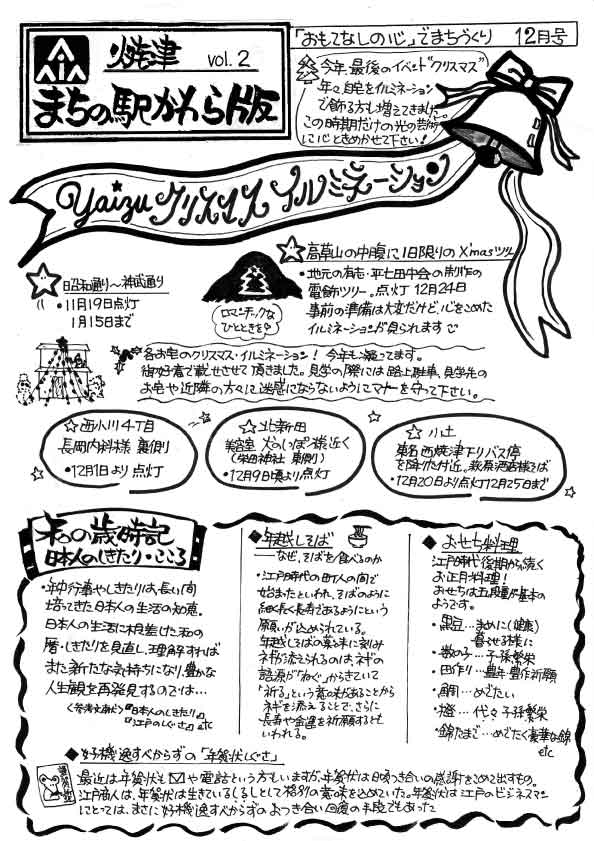 焼津 vol.2
まちの駅かわら版
「おもてなしの心」でまちづくり 12月号
今年、最後のイベント"クリスマス"
年々、自宅をイルミネーション
で飾る方も増えてきました。
この時期だけの光の芸術
に心ときめかせて下さい!
Yaizu クリスマス イルミネーション
昭和通り～神武通り
・11月19日点灯
1月15日まで
ロマンチックな
ひとときを
高草山の中腹に1日限りのX'masツリー
・地元の有志・平七田中会の制作の
電飾ツリー。点灯 12月24日
事前の準備は大変だけど、心をこめた
イルミネーションが見られます
各お宅のクリスマス・イルミネーション! 今年も凝ってます。
御好意で載せさせて頂きました。見学の際には路上駐車、見学先の
お宅や近隣の方々に迷惑にならないようにマナーを守って下さい。
西小川4丁目
長岡内科様 裏側
・12月1日より点灯
北新田
美容室 犬のしっぽ様近く
(栄田神社 東側)
・12月9日頃より点灯
小土
東名西焼津下りバス停
を降りた付近。萩原酒店様そば
・12月20日より点灯12月25日まで
和の歳時記
日本人のしきたり・こころ
・年中行事やしきたりは、長い間
培ってきた日本人の生活の知恵。
日本人の生活に根差した和の
暦・しきたりを見直し、理解すれば
また新たな気持ちになり、豊かな
人生観を再発見するのでは…
<参考文献>『日本人のしきたり』
『江戸しぐさ』etc
◆年越しそば
―なぜ、そばを食べるのか
・江戸時代の町人の間で
始まったといわれ、そばのように
細く長く長寿であるようにという
願いが込められている。
年越しそばの薬味に刻み
ネギが添えられるのは、ネギの
語源が「ねぐ」からきていて
「祈る」という意味があることから
ネギを添えることで、さらに
長寿や金運を祈願するとも
いわれる。
◆おせち料理
江戸時代後期から続く
お正月料理!
おせちは五段重が基本の
ようです。
・黒豆…まめに(健康)
暮せる様に
・数の子…子孫繁栄
・田作り…豊年豊作祈願
・鯛…めでたい
・橙…代々子孫繁栄
・錦たまご…めでたく豪華な錦
etc
◆好機逸すべからずの「年賀状しぐさ」
最近は年賀状も✉や電話という方もいますが、年賀状は日頃つき合いの感謝をこめて出すもの。
江戸商人は、年賀状は生きているしるしとして格別の意味を込めていた。年賀状は江戸のビジネスマン
にとっては、まさに好機逸すべからずのよつき合い回復の手段でもあった